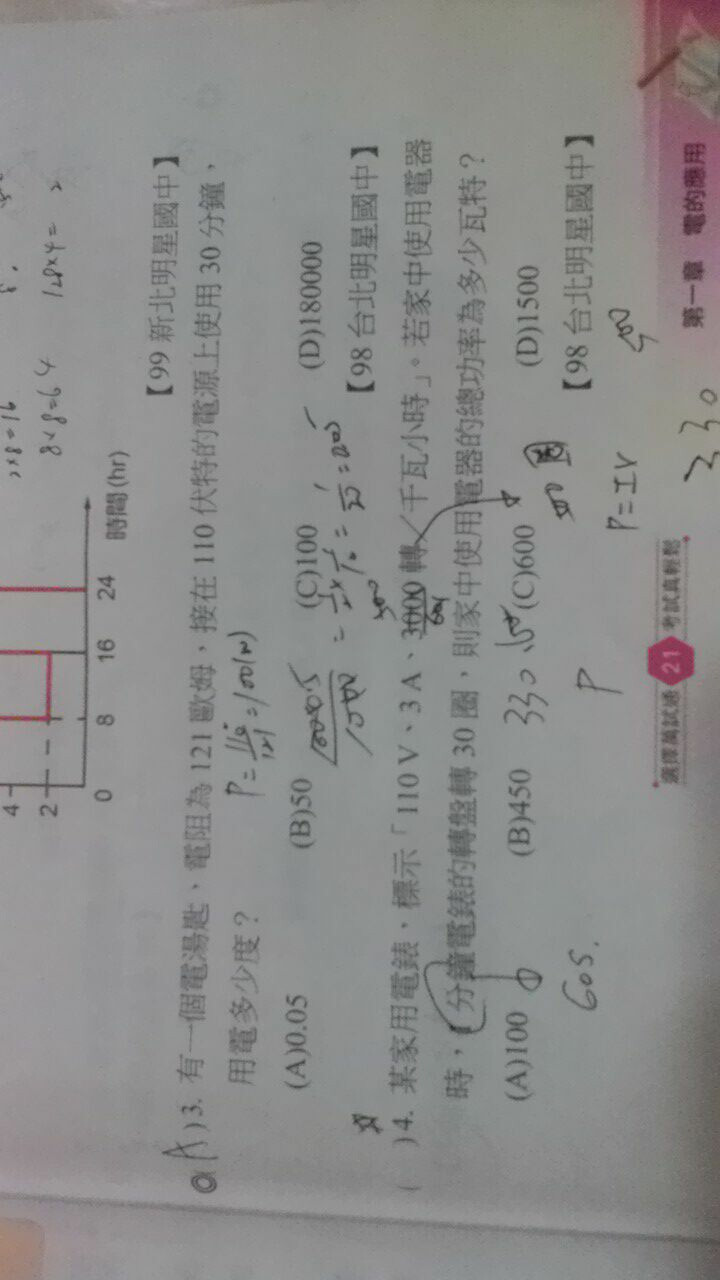 2×8=16
8×8=64 128×4=
4
2
0 8 16 24 時間(hr)
【99 新北明星國中】
(A)3. 有一個電湯匙、電阻為 121 歐姆,接在 110 伏特的電源上使用 30 分鐘,
用電多少度?
P= =100(W)
(A)0.05 (B)50 (C)100 (D)180000
【98 台北明星國中】
( )4. 某家用電錶,標示「110 V、3 A、3000 轉/千瓦小時」。若家中使用電器
時,1 分鐘電錶的轉盤轉 30 圈,則家中使用電器的總功率為多少瓦特?
(A)100 (B)450 (C)600 (D)1500
330
【98 台北明星國中】
60s.
P
P=IV
330
選擇萬試通 21 考試真輕鬆
第一章 電的應用